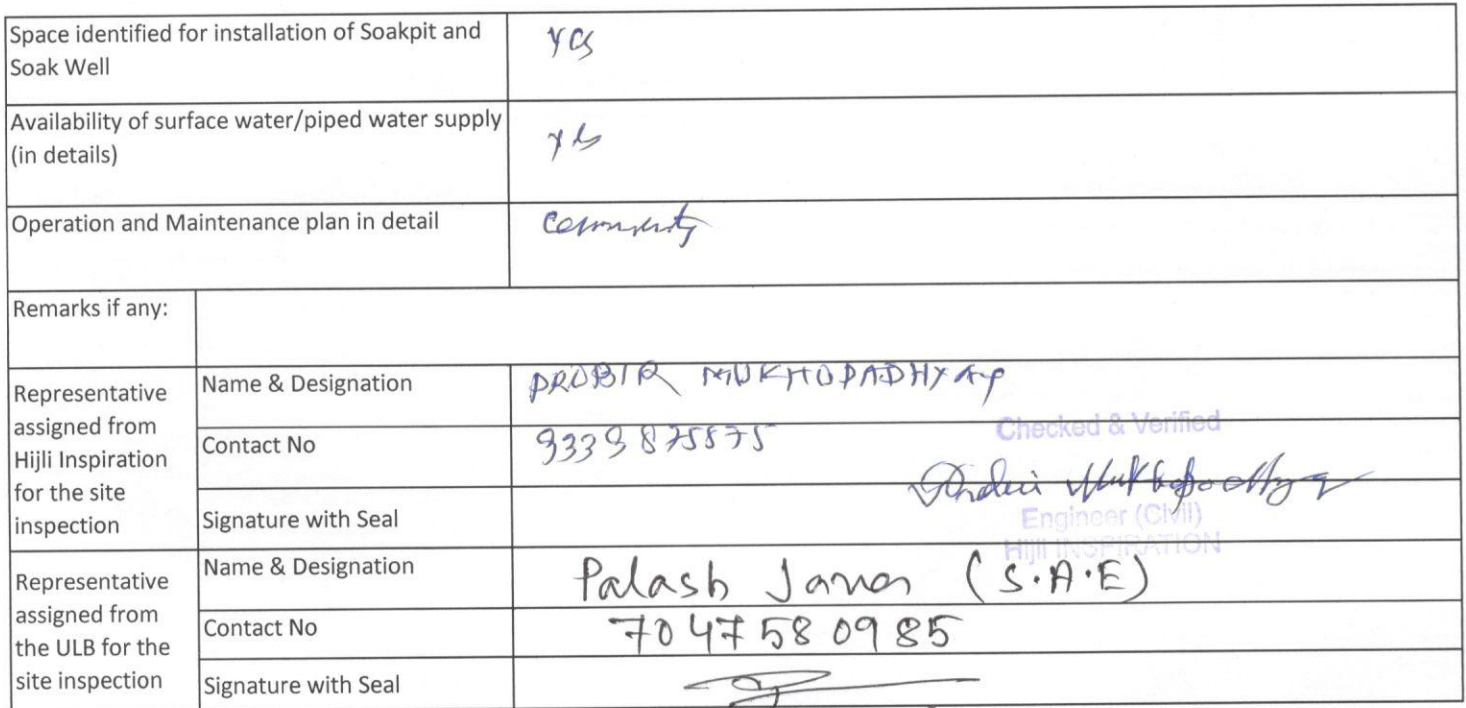 Space identified for installation of Soakpit and
Soak Well
Yes
Availability of surface water/piped water supply
(in details)
Yes
Operation and Maintenance plan in detail
Community
Remarks if any:
Representative
assigned from
Hijli Inspiration
for the site
inspection
Name & Designation
PROBIR MUKHOPADHYAY
Contact No
9339875875
Signature with Seal
Checked & Verified
Engineer (Civil)
Hijli INSPIRATION
Representative
assigned from
the ULB for the
site inspection
Name & Designation
Palash Jana (S.A.E)
Contact No
7047580985
Signature with Seal